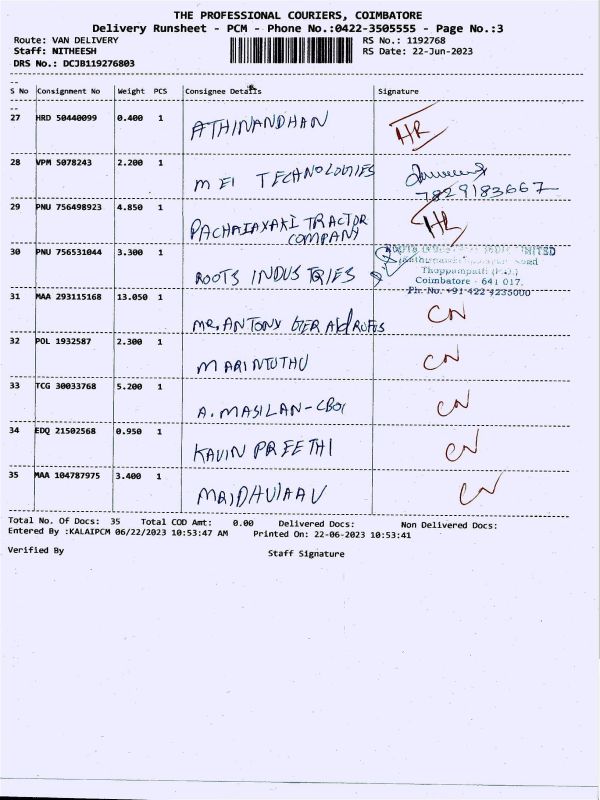 THE PROFESSIONAL COURIERS, COIMBATORE
Delivery Runsheet - PCM - Phone No.:0422-3505555 - Page No.:3
Route: VAN DELIVERY RS No.: 1192768
Staff: NITHEESH RS Date: 22-Jun-2023
DRS No.: DCJB119276803
S No Consignment No Weight PCS Consignee Details Signature
27 HRD 50440099 0.400 1 ATHINANDHAN HR
28 VPM 5078243 2.200 1 MEI TECHNOLOGIES
7829183667
29 PNU 756498923 4.850 1 TRACTOR HR
COMPANY
30 PNU 756531044 3.300 1 ROOTS INDUSTRIES
Thoppampatti (P.O.)
Coimbatore - 641 017.
Ph. No. +91 422 4235000
31 MAA 293115168 13.050 1 MR. ANTONY CN
32 POL 1932587 2.300 1 MARIMUTHU CN
33 TCG 30033768 5.200 1 A. MASILAN-CBOI CN
34 EDQ 21502568 0.950 1 KAVIN PREETHI CN
35 MAA 104787975 3.400 1 CN
Total No. Of Docs: 35 Total COD Amt: 0.00 Delivered Docs: Non Delivered Docs:
Entered By :KALAIPCM 06/22/2023 10:53:47 AM Printed On: 22-06-2023 10:53:41
Verified By Staff Signature